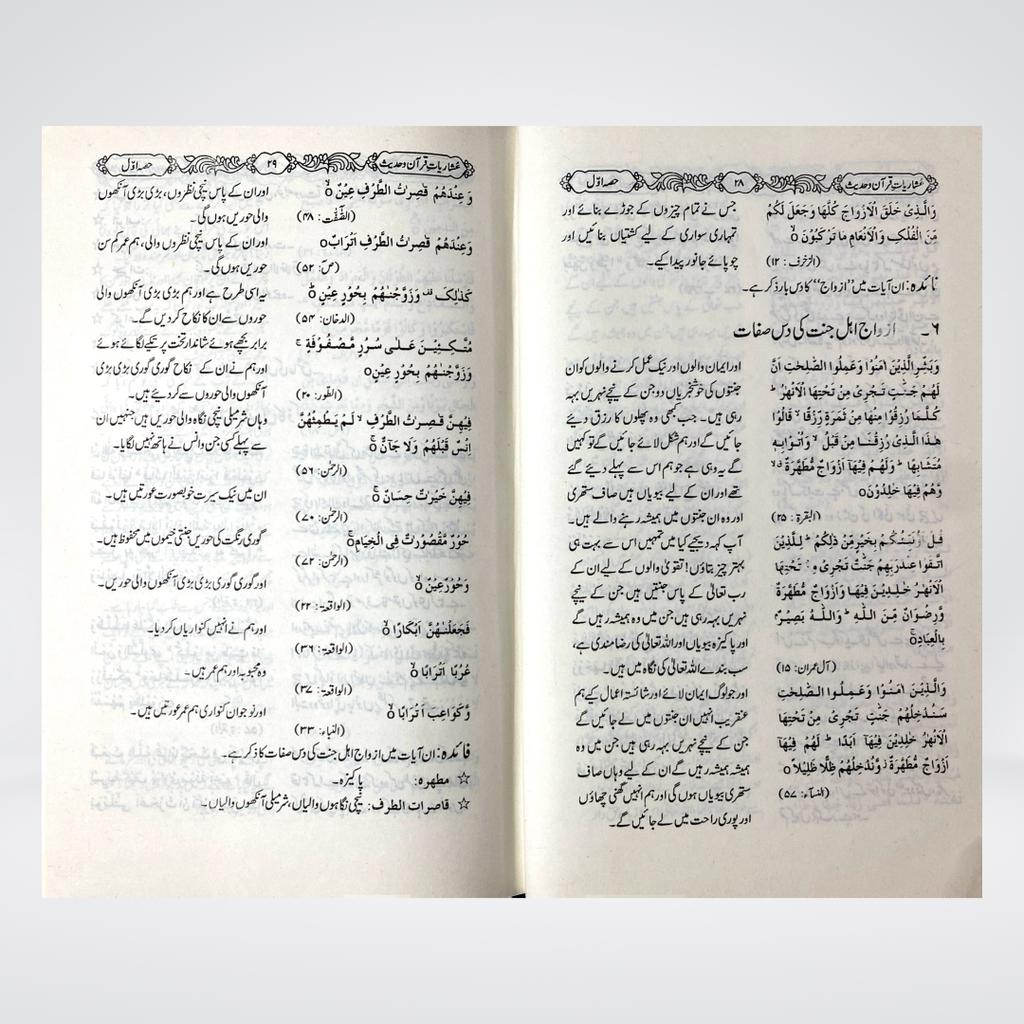 عشاریات قرآن وحدیث
۲۸
حصہ اوّل
وَالَّذِیْ خَلَقَ الْاَزْوَاجَ کُلَّھَا وَجَعَلَ لَکُمْ
مِّنَ الْفُلْکِ وَالْاَنْعَامِ مَا تَرْکَبُوْنَ ۝ۙ
(الزخرف: ۱۲)
جس نے تمام چیزوں کے جوڑے بنائے اور
تمہاری سواری کے لیے کشتیاں بنائیں اور
چوپائے جانور پیدا کیے۔
فائدہ: ان آیات میں ”ازواج“ کا دس بار ذکر ہے۔
۶۔ ازواج اہل جنت کی دس صفات
وَبَشِّرِ الَّذِیْنَ اٰمَنُوْا وَعَمِلُوا الصّٰلِحٰتِ اَنَّ
لَھُمْ جَنّٰتٍ تَجْرِیْ مِنْ تَحْتِھَا الْاَنْھٰرُ ؕ
کُلَّمَا رُزِقُوْا مِنْھَا مِنْ ثَمَرَۃٍ رِّزْقًا ۙ قَالُوْا
ھٰذَا الَّذِیْ رُزِقْنَا مِنْ قَبْلُ ۙ وَاُتُوْا بِہٖ
مُتَشَابِھًا ؕ وَلَھُمْ فِیْھَآ اَزْوَاجٌ مُّطَھَّرَۃٌ ۙ٭
وَّھُمْ فِیْھَا خٰلِدُوْنَ۝
(البقرۃ: ۲۵)
اور ایمان والوں اور نیک عمل کرنے والوں کو ان
جنتوں کی خوشخبریاں دو جن کے نیچے نہریں بہہ
رہی ہیں۔ جب کبھی وہ پھلوں کا رزق دیئے
جائیں گے اور ہم شکل لائے جائیں گے تو کہیں
گے یہ وہی ہے جو ہم اس سے پہلے دیئے گئے
تھے اور ان کے لیے بیویاں ہیں صاف ستھری
اور وہ ان جنتوں میں ہمیشہ رہنے والے ہیں۔
قُلْ اَؤُنَبِّئُکُمْ بِخَیْرٍ مِّنْ ذٰلِکُمْ ؕ لِلَّذِیْنَ
اتَّقَوْا عِنْدَ رَبِّھِمْ جَنّٰتٌ تَجْرِیْ مِنْ تَحْتِھَا
الْاَنْھٰرُ خٰلِدِیْنَ فِیْھَا وَاَزْوَاجٌ مُّطَھَّرَۃٌ
وَّرِضْوَانٌ مِّنَ اللّٰہِ ؕ وَاللّٰہُ بَصِیْرٌۢ
بِالْعِبَادِ۝ۚ
(آل عمران: ۱۵)
آپ کہہ دیجیے کیا میں تمہیں اس سے بہت ہی
بہتر چیز بتاؤں! تقویٰ والوں کے لیے ان کے
رب تعالیٰ کے پاس جنتیں ہیں جن کے نیچے
نہریں بہہ رہی ہیں جن میں وہ ہمیشہ رہیں گے
اور پاکیزہ بیویاں اور اللہ تعالیٰ کی رضامندی ہے،
سب بندے اللہ تعالیٰ کی نگاہ میں ہیں۔
وَالَّذِیْنَ اٰمَنُوْا وَعَمِلُوا الصّٰلِحٰتِ
سَنُدْخِلُھُمْ جَنّٰتٍ تَجْرِیْ مِنْ تَحْتِھَا
الْاَنْھٰرُ خٰلِدِیْنَ فِیْھَآ اَبَدًا ؕ لَھُمْ فِیْھَآ
اَزْوَاجٌ مُّطَھَّرَۃٌ ۫ وَّنُدْخِلُھُمْ ظِلًّا ظَلِیْلًا۝
(النسآء: ۵۷)
اور جو لوگ ایمان لائے اور شائستہ اعمال کیے ہم
عنقریب انہیں ان جنتوں میں لے جائیں گے
جن کے نیچے نہریں بہہ رہی ہیں جن میں وہ
ہمیشہ ہمیشہ رہیں گے ان کے لیے وہاں صاف
ستھری بیویاں ہوں گی اور ہم انہیں گھنی چھاؤں
اور پوری راحت میں لے جائیں گے۔
عشاریات قرآن وحدیث
۲۹
حصہ اوّل
وَعِنْدَھُمْ قٰصِرٰتُ الطَّرْفِ عِیْنٌ ۝ۙ
(الصّٰفّٰت: ۴۸)
اور ان کے پاس نیچی نظروں، بڑی بڑی آنکھوں
والی حوریں ہوں گی۔
وَعِنْدَھُمْ قٰصِرٰتُ الطَّرْفِ اَتْرَابٌ۝
(صٓ: ۵۲)
اور ان کے پاس نیچی نظروں والی، ہم عمر کم سن
حوریں ہوں گی۔
کَذٰلِکَ ۟ وَزَوَّجْنٰھُمْ بِحُوْرٍ عِیْنٍ ۝ؕ
(الدخان: ۵۴)
یہ اسی طرح ہے اور ہم بڑی بڑی آنکھوں والی
حوروں سے ان کا نکاح کردیں گے۔
مُتَّکِئِیْنَ عَلٰی سُرُرٍ مَّصْفُوْفَۃٍ ۚ
وَزَوَّجْنٰھُمْ بِحُوْرٍ عِیْنٍ۝
(الطّور: ۲۰)
برابر بچھے ہوئے شاندار تخت پر تکیے لگائے ہوئے
اور ہم نے ان کے نکاح گوری گوری بڑی بڑی
آنکھوں والی حوروں سے کردیئے ہیں۔
فِیْھِنَّ قٰصِرٰتُ الطَّرْفِ ۙ لَمْ یَطْمِثْھُنَّ
اِنْسٌ قَبْلَھُمْ وَلَا جَآنٌّ ۝ۚ
(الرحمٰن: ۵۶)
وہاں شرمیلی نیچی نگاہ والی حوریں ہیں جنہیں ان
سے پہلے کسی جن وانس نے ہاتھ نہیں لگایا۔
فِیْھِنَّ خَیْرٰتٌ حِسَانٌ ۝ۚ
(الرحمٰن: ۷۰)
ان میں نیک سیرت خوبصورت عورتیں ہیں۔
حُوْرٌ مَّقْصُوْرٰتٌ فِی الْخِیَامِ۝ۚ
(الرحمٰن: ۷۲)
گوری رنگت کی حوریں جنتی خیموں میں محفوظ ہیں۔
وَحُوْرٌ عِیْنٌ ۝ۙ
(الواقعۃ: ۲۲)
اور گوری گوری بڑی بڑی آنکھوں والی حوریں۔
فَجَعَلْنٰھُنَّ اَبْکَارًا ۝ۙ
(الواقعۃ: ۳۶)
اور ہم نے انہیں کنواریاں کردیا۔
عُرُبًا اَتْرَابًا ۝ۙ
(الواقعۃ: ۳۷)
وہ محبوبہ اور ہم عمر ہیں۔
وَّکَوَاعِبَ اَتْرَابًا ۝ۙ
(النباء: ۳۳)
اور نوجوان کنواری ہم عمر عورتیں ہیں۔
فائدہ: ان آیات میں ازواج اہل جنت کی دس صفات کا ذکر ہے۔
☆ مطہرہ: پاکیزہ۔
☆ قاصرات الطرف: نیچی نگاہوں والیاں، شرمیلی آنکھوں والیاں۔